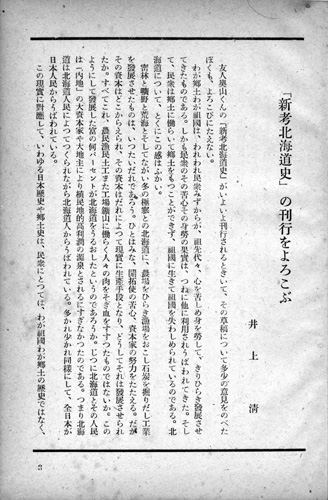 「新考北海道史」の刊行をよろこぶ
井上清
友人奥山くんの『新考北海道史』がいよいよ上刊行されるときいて、その草稿について多少の意見をのべた
ぼくも、よろこびにたえない。
わが郷土わが祖国は、われわれ民衆みずからが、祖先代々、心を苦しめ身を労して、きりひらき発展させ
てきたものである。しかも民衆のその苦心その身労の果実は、つねに他に利用されうばわれてきた。そし
て、民衆は郷土に働らいて郷土をもつことができず、祖國に生きて祖國を失わしめられているのである。北
海道について、とくにこの感はふかい。
密林と曠野と荒海とそしてながい冬の極寒との北海道に、農場をひらき漁場をおこし石炭を掘りだし工業
を発展させたものは、いつたいだれであろう。ひとはみな、開拓使の苦心、資本家の努力をたたえる。だが
その資本はどこからえられ、その資本はだれによつて現実に生産手段となり、どうしてそれは発展させられ
たか。すべてこれ、農民漁民土工また工場鑛山に働らく人々の肉をそぎ血をすすつたものではないか。この
ようにして発展した富の何パーセントが北海道をうるおしたというのであろうか。じつに北海道とその人民
は「内地」の大資本家や大地主により植民地的高利潤の源泉とされるにすぎなかつたのである。つまり北海
道は北海道人民によつてつくられながら北海道人からうばわれている。多かれ少かれ同様にして、全日本が
日本人民からうばわれている。
この現実に対應して、いわゆる日本歴史や郷土史は、民衆にとつては、わが祖國わが郷土の歴史ではなく、
3